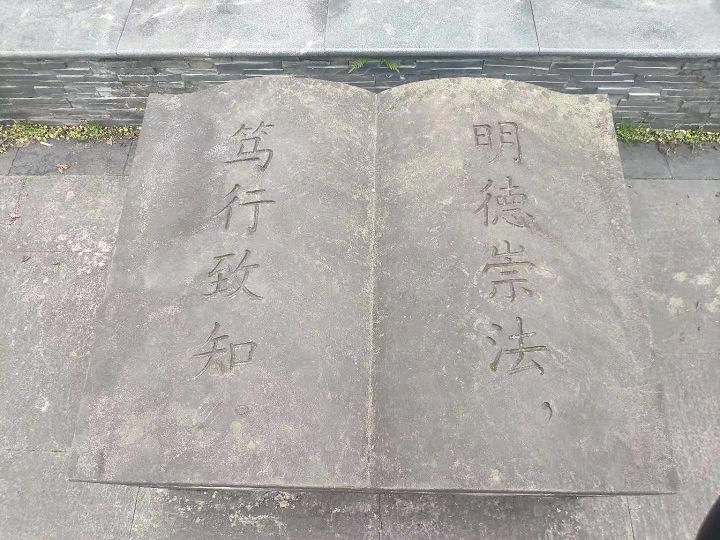 明德崇法，
笃行致知。